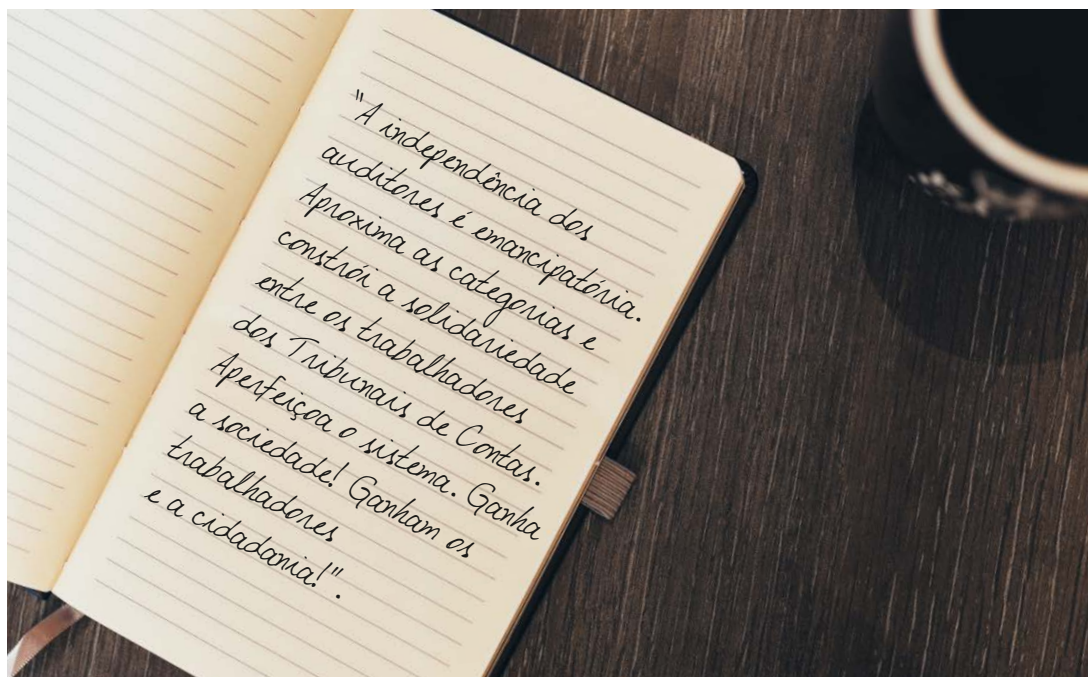 "A independência dos
auditores é emancipatória.
Aproxima as categorias e
constrói a solidariedade
entre os trabalhadores
dos Tribunais de Contas.
Aperfeiçoa o sistema. Ganha
a sociedade! Ganham os
trabalhadores
e a cidadania!".